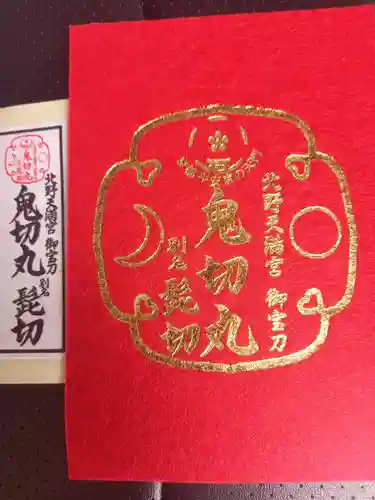 北野天満宮 御宝刀
鬼切丸 別名 髭切
出
北野天満宮 御宝刀
鬼切丸
別名 髭切